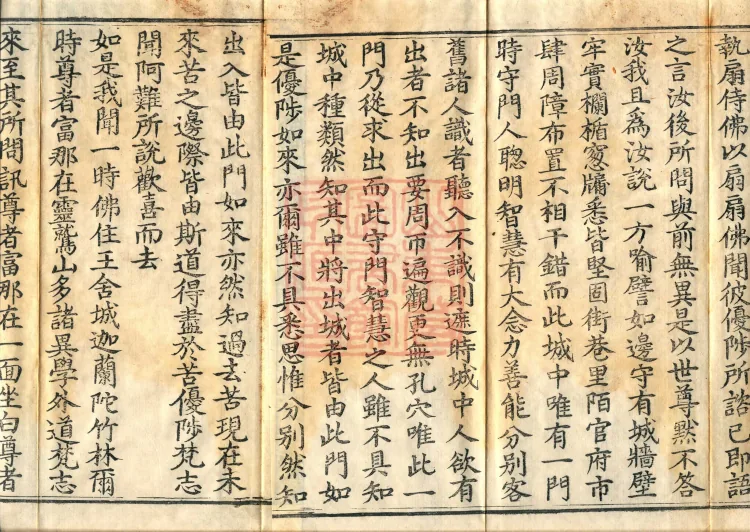 執扇侍佛以扇扇佛聞彼優陟所諮已即語
之言汝後所問與前無異是以世尊黙不答
汝我且為汝說一方喻譬如邊守有城牆壁
牢實欄楯窓牖悉皆堅固街巷里陌官府市
肆周障布置不相干錯而此城中唯有一門
時守門人聡明智慧有大念力善能分別客
舊諸人識者聽入不識則遮時城中人欲有
出者不知出要周帀遍觀更無孔穴唯此一
門乃從求出而此守門智慧之人雖不具知
城中種類然知其中將出城者皆由此門如
是優陟如來亦爾雖不具悉思惟分別然知
出入皆由此門如來亦然知過去苦現在未
來苦之邊際皆由斯道得盡於苦優陟梵志
聞阿難所說歡喜而去
如是我聞一時佛住王舍城迦蘭陀竹林爾
時尊者富那在靈鷲山多諸異學外道梵志
來至其所問訊尊者富那在一面坐白尊者